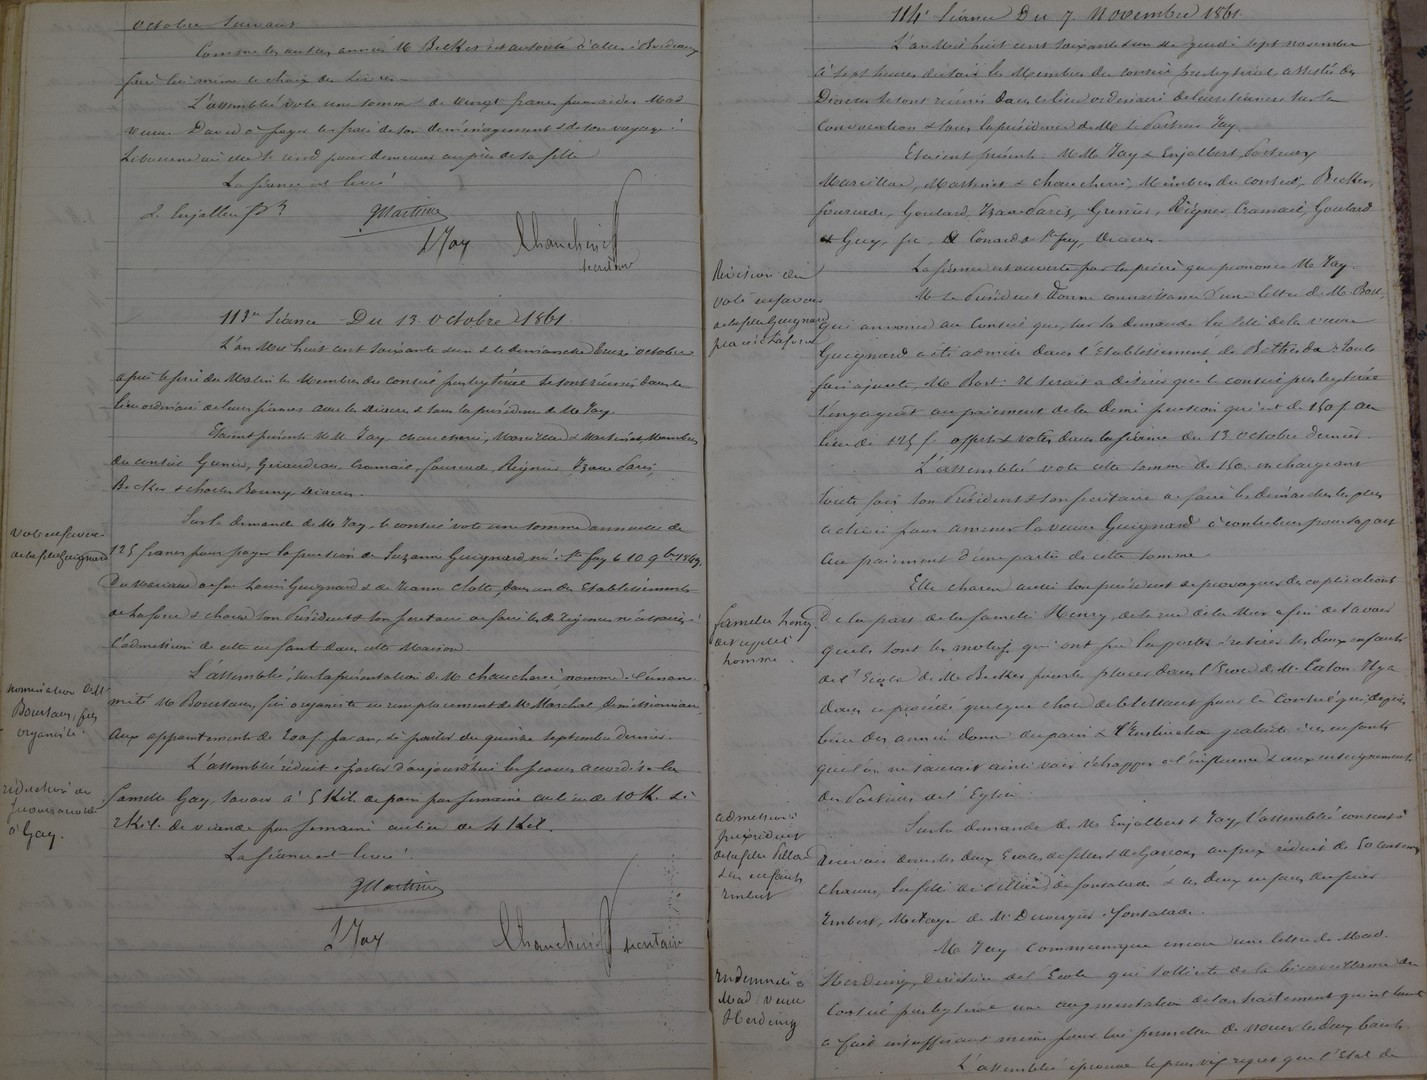 octobre suivant
Comme les autres années M Becker est autorisé d'aller à Bordeaux
faire lui même le choix des livres.
L'assemblée vote une somme de vingt francs pour aider Mad
veuve David à payer les frais de son déménagement & de son voyage à
Libourne où elle se rend pour demeurer auprès de sa fille
La séance est levée.
Martinet
J Jay
secrétaire
113me Séance Du 13 octobre 1861
L'an Mil huit cent soixante & un & le dimanche treize octobre
après le service du Matin les Membres du conseil presbytéral se sont réunis dans le
lieu ordinaire de leurs séances avec les Diacres & sous la présidence de M. Jay.
Etaient présents M M Jay Membres
du conseil Grenier, Giraudeau, Cramail, Reignier
Becker & Charles Diacres.
Vote en faveur
de la fille Guignard
Sur la demande de M. Jay, le conseil vote une somme annuelle de
125 francs pour payer la pension de Suzanne Guignard née à Ste foy le 10 9bre 1849,
Du Mariage de feu Louis Guignard & de Jeanne dans un des Etablissements
de Laforce & charge son Président & son secrétaire de faire les diligences nécessaires à
l'admission de cette enfant dans cette Maison
nomination de M
organiste.
L'assemblée, sur la présentation de M nomme à l'unani-
mité M organiste en remplacement de M. Maréchal démissionnaire
aux appointements de 200 f par an, à partir du quinze septembre dernier.
réduction de
secours accordé
à Gay.
L'assemblée réduit à partir d'aujourd'hui les secours accordés à la
famille Gay, savoir à 5 Kil. de pain par semaine au lieu de 10 K. &
2 Kil. de viande par semaine au lieu de 4 Kil.
La séance est levée.
Martinet
J Jay
secrétaire
114e Séance Du 7 Novembre 1861
L'an Mil huit cent soixante & un & le jeudi sept novembre
à sept heures du soir les Membres du conseil presbytéral, assistés des
Diacres se sont réunis dans le lieu ordinaire de leurs séances sur la
Convocation & sous la présidence de M. le Pasteur Jay
Etaient présents: M M Jay & Enjalbert Pasteurs
Martinet & Membres du conseil, Becker,
Goulard, Grenier, Reignier, Cramail, Goulard
& Gay, fils, & Ste foy, Diacres.
La séance est ouverte par la prière que prononce M. Jay.
Révision du
vote en faveur
de la fille Guignard
placée à Laforce
M le Président donne connaissance d'une lettre de M Bost,
qui annonce au Conseil que, sur la demande la fille de la veuve
Guignard a été admise dans l'Etablissement de Béthesda. Toute
fois ajoute, M. Bost: il serait à désirer que le conseil presbytéral
s'engageât au paiement de la demi pension qui est de 150 f au
lieu de 125 f. offerts & votés dans la séance du 13 octobre dernier.
L'assemblée vote cette somme de 150. en chargeant
toute fois son Président & son secrétaire de faire les démarches les plus
actives pour amener la veuve Guignard à contribuer pour sa part
au paiement d'une partie de cette somme.
Elle charge aussi son président de provoquer des explications
famille Henry
homme.
De la part de la famille Henry, de la rue de la Mer afin de savoir
quels sont les motifs qui ont pu les porter à retirer les deux enfants
de l'Ecole de M. Becker pour les placer dans l'Ecole de M. Il y a
dans ce procédé quelque chose de blessant pour le Conseil qui depuis
bien des années donne du pain & l'Instruction gratuite à ces enfants
que l'on ne saurait ainsi voir échapper à l'influence & aux enseignements
des Pasteurs de l'Eglise.
admission à
prix réduit
de la fille
& des enfants
Imbert
Sur la demande de M. Enjalbert & Jay, l'assemblée consent à
recevoir dans les deux Ecoles de filles & de Garçons, au prix réduit de 50 centimes
chacun, la fille de & les deux enfants du sieur
Imbert, Métayer de Mr
M Jay communique encore une lettre de Mad.
Indemnité à
Mad. veuve
Herding
Herding, directrice de l'Ecole qui sollicite de la bienveillance du
Conseil presbytéral une augmentation de son traitement qui est tout
à fait insuffisant même pour lui permettre de nouer les deux bouts
L'assemblée éprouve le plus vif regret que l'Etat de